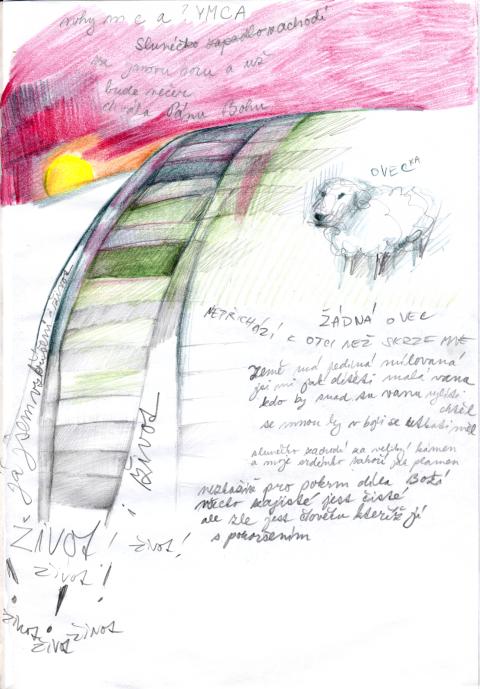 nohy m c a? YMCA
Slunéčko zapadlo zachodí
za horu a už
bude večer
chvála Pánu Bohu
OVEČKA
NEPŘICHÁZÍ K OTCI NEŽ SKRZE MNE
ŽÁDNÁ OVEC
Země má jediná milovaná
jsi mi jak dítěti malá vana
kdo by snad tu vanu
chtěl
se mnou by v boji se utkati měl
slunéčko zachodí za veliký kámen
a moje srdénko hoří jak plamen
nezkašiž pro pokrm díla Boží
všecko zajisté jest čisté
ale zlé jest člověku kterýž jí
s pohoršením
Já jsem vzkříšení a život
i život
ŽIVOT!
život!
život!
život
život
život